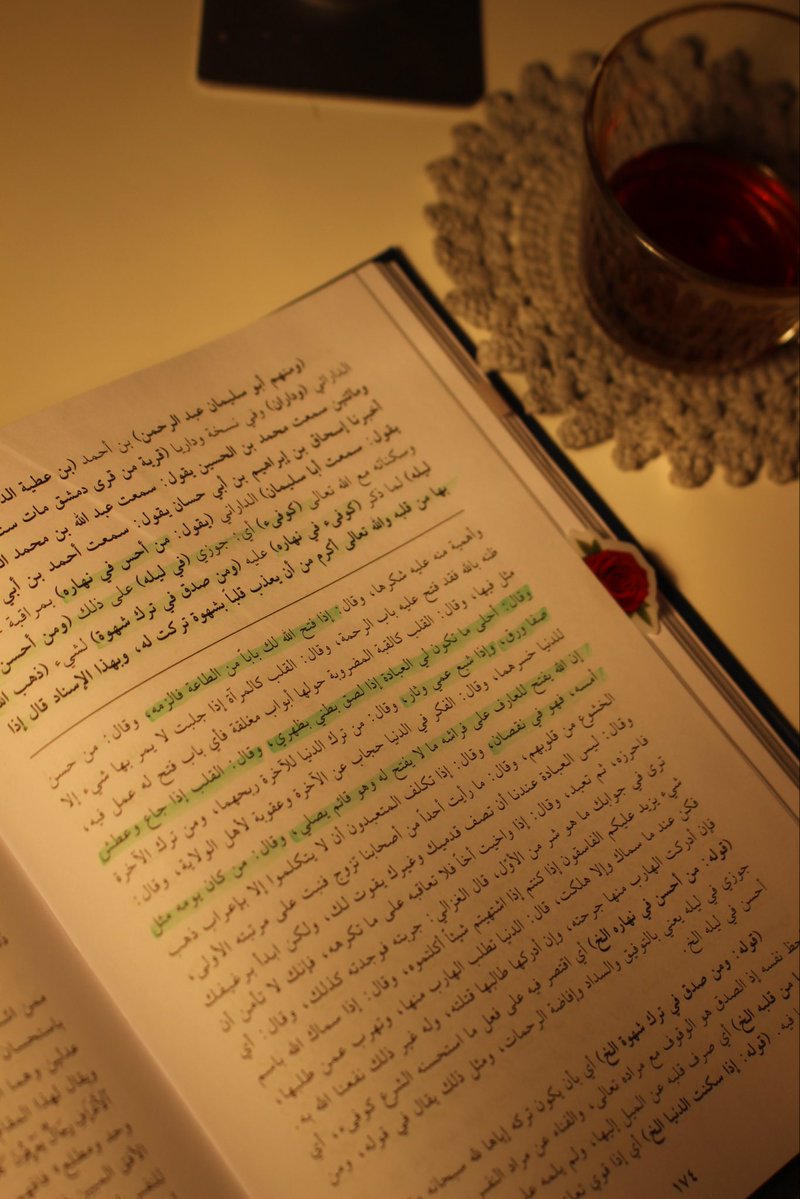 (ومنهم أبو سليمان عبد الرحمن) بن أحمد (ابن عطية
الداراني (وداران) وفي نسخة وداريا (قرية من قرى دمشق مات
ومائتين سمعت محمد بن الحسين يقول: سمعت عبد الله بن محمد
أخبرنا إسحاق بن إبراهيم بن أبي حسان يقول: سمعت أحمد بن أبي
يقول: سمعت أبا سليمان) الداراني (يقول: من أحسن في نهاره) بمراقبة
وسكناته مع الله تعالى (كوفىء) أي: جوزي (في ليله) على ذلك (ومن أحسن
ليله) لما ذكر (كوفىء في نهاره) عليه (ومن صدق في ترك شهوة) لشيء (ذهب
بها من قلبه والله تعالى أكرم من أن يعذب قلباً بشهوة تركت له، وبهذا الإسناد قال إذا
وأهمية منه عليه شكرها، وقال: إذا فتح الله لك باباً من الطاعة فالزمه، وقال: من حسن
ظنه بالله فقد فتح عليه باب الرحمة، وقال: القلب كالمرآة إذا جليت لا يمر بها شيء إلا
مثل فيها، وقال: القلب كالقبة المضروبة حولها أبواب مغلقة فأي باب فتح له عمل فيه،
وقال: أحلى ما تكون لي العبادة إذا لصق بطني بظهري، وقال: القلب إذا جاع وعطش
صفا ورق، وإذا شبع عمي وثار، وقال: من ترك الدنيا للآخرة ربحهما، ومن ترك الآخرة
للدنيا خسرهما، وقال: الفكر في الدنيا حجاب عن الآخرة وعقوبة لأهل الولاية، وقال:
إن الله يفتح للعارف على فراشه ما لا يفتح له وهو قائم يصلي، وقال: من كان يومه مثل
أمسه، فهو في نقصان، وقال: إذا تكلف المتعبدون أن لا يتكلموا إلا بإعراب ذهب
الخشوع من قلوبهم، وقال: ما رأيت أحداً من أصحابنا تزوج فثبت على مرتبته الأولى،
وقال: ليس العبادة عندنا أن تصف قدميك وغيرك يقوت لك، ولكن ابدأ برغيفك
فاحرزه، ثم تعبد، وقال: إذا واخيت أخاً فلا تعاقبه على ما تكرهه، فإنك لا تأمن أن
ترى في جوابك ما هو شر من الأول، قال الغزالي: جربته فوجدته كذلك، وقال: أي
شيء يزيد عليكم الفاسقون إذا كنتم إذا اشتهيتم شيئاً أكلتموه، وقال: إذا سماك الله باسم
فكن عند ما سماك وإلا هلكت، قال: الدنيا تطلب الهارب منها، وتهرب عمن طلبها،
فإن أدركت الهارب منها جرحته، وإن أدركها طالبها قتلته، وله غير ذلك نفعنا الله به.
(قوله: من أحسن في نهاره الخ) أي اقتصر فيه على فعل ما استحسنه الشرع كوفىء، أي
جوزي في ليله يعني بالتوفيق والسداد وإفاضة الرحمات، ومثل ذلك يقال في قوله، ومن
أحسن في ليله الخ.
(قوله: ومن صدق في ترك شهوة الخ) أي بأن يكون تركه إياها لله سبحانه
حظ نفسه إذ الصدق هو الوقوف مع مراده تعالى، والفناء عن مراد
من قلبه الخ) أي صرف قلبه عن الميل إليها، ولم يلمه
فيه. (قوله: إذا سكنت الدنيا الخ) أي إذا قوي
١٧٤